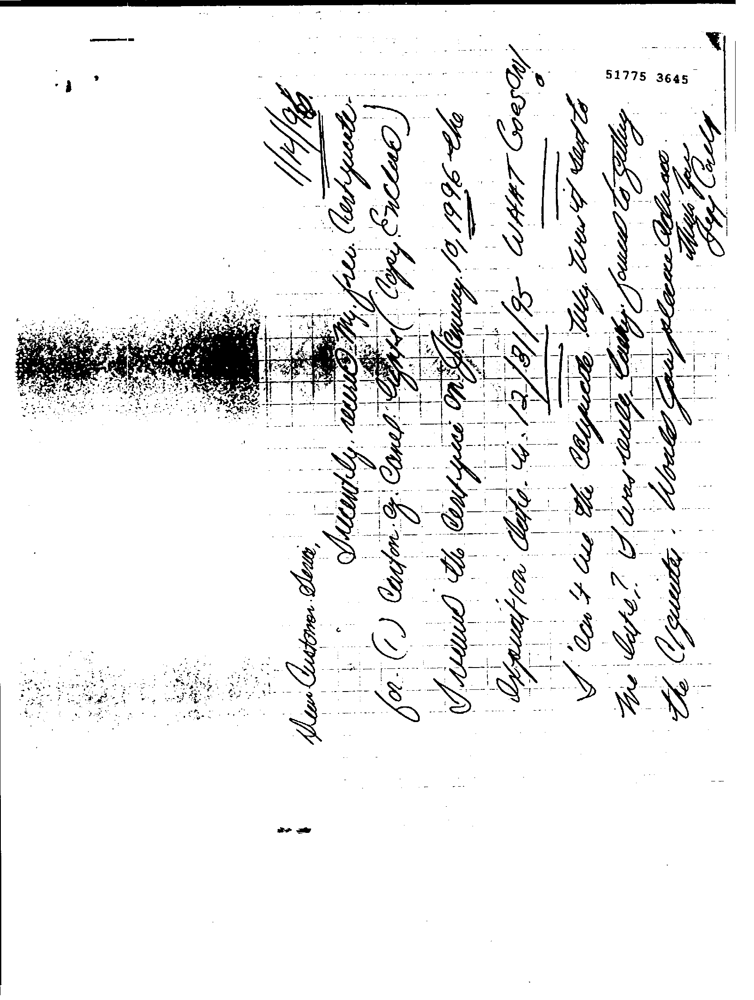 51775 3645
1/12/96
Dear Customer Service,
I recently received My free Certificate
for (1) Carton of Camel Lights (Copy Enclose)
I received the Certificate on January 10, 1996 the
Expiration date is 12/31/95 WHAT GoesON!
I can't use the Certificate Why was it sent to
me late? I was really looking forward to getting
the Cigarettes. Would you please Advise
Thank You